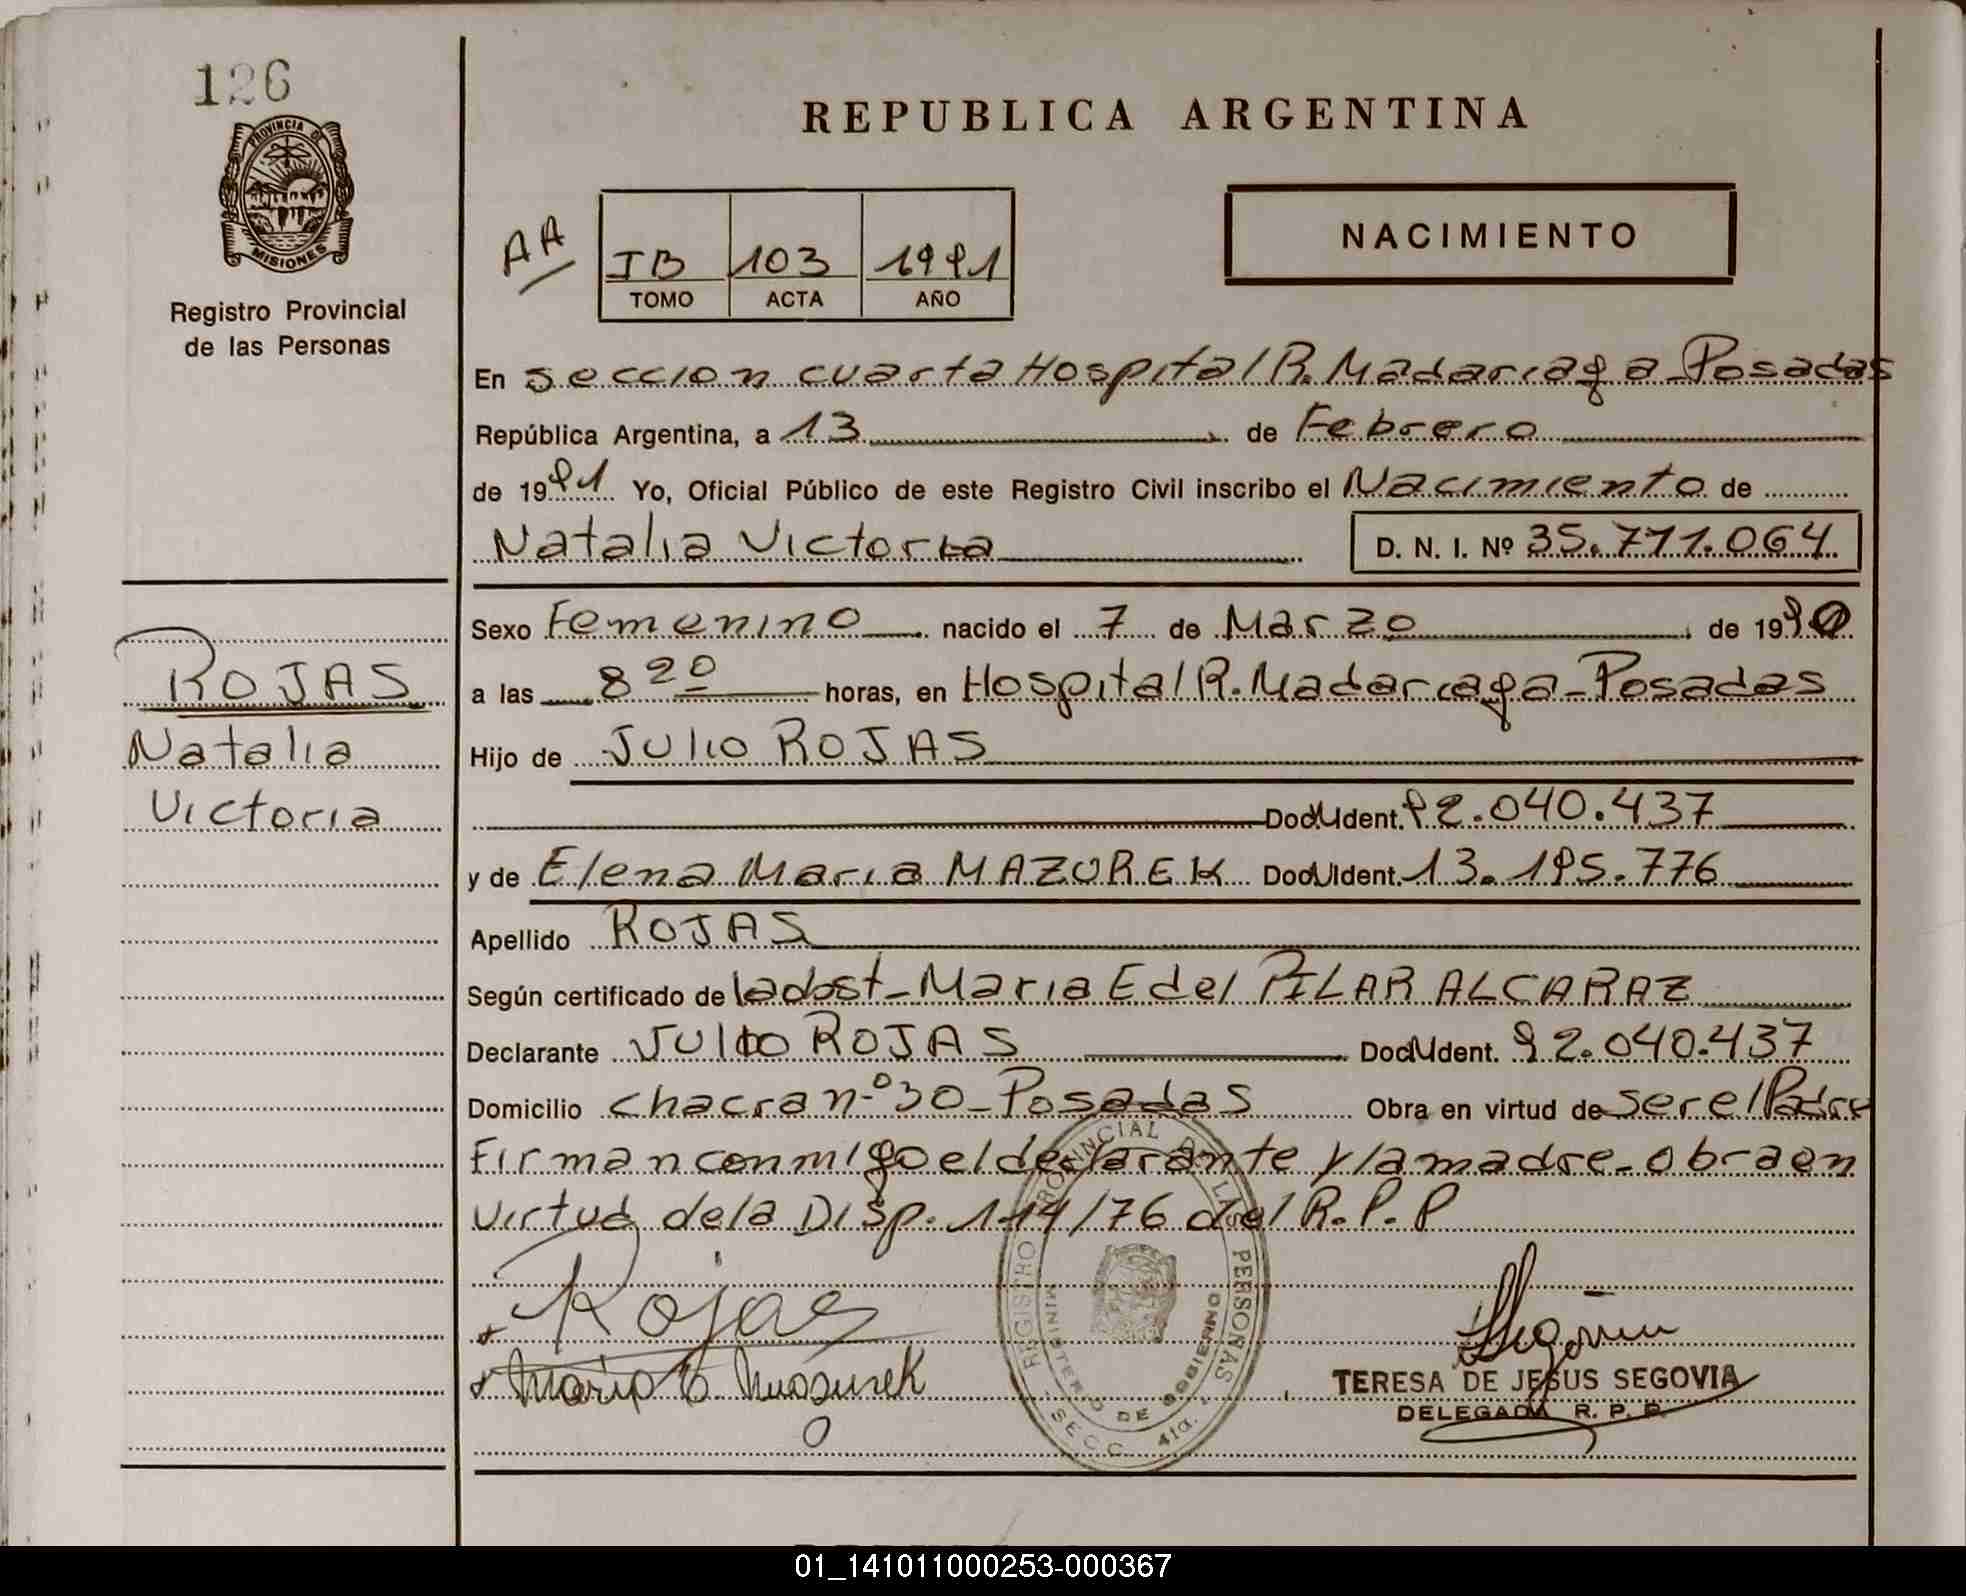 126
PROVINCIA DE
MISIONES
Registro Provincial
de las Personas
REPUBLICA ARGENTINA
AA
IB 103 1991
TOMO ACTA AÑO
NACIMIENTO
En seccion cuarta Hospital R. Madariaga - Posadas
República Argentina, a 13 de Febrero
de 1991 Yo, Oficial Público de este Registro Civil inscribo el Nacimiento de
Natalia Victoria D. N. I. Nº 35.711.064
Sexo Femenino nacido el 7 de Marzo de 1990
a las 8 20 horas, en Hospital R. Madariaga - Posadas
Hijo de Julio ROJAS
Doc. Ident. 92.040.437
y de Elena Maria MAZUREK Doc. Ident. 13.195.776
Apellido ROJAS
Según certificado de la obst - Maria E del PILAR ALCARAZ
Declarante Julio ROJAS Doc. Ident. 92.040.437
Domicilio chacra nº 30 - Posadas Obra en virtud de ser el Padre
Firman conmigo el declarante y la madre - obra en
virtud de la Disp. 114/76 del R.P.P
Rojas
TERESA DE JESUS SEGOVIA
DELEGADA R. P. P.
REGISTRO PROVINCIAL DE LAS PERSONAS
MINISTERIO DE GOBIERNO
SECC. 4ta.
ROJAS
Natalia
Victoria
01_141011000253-000367